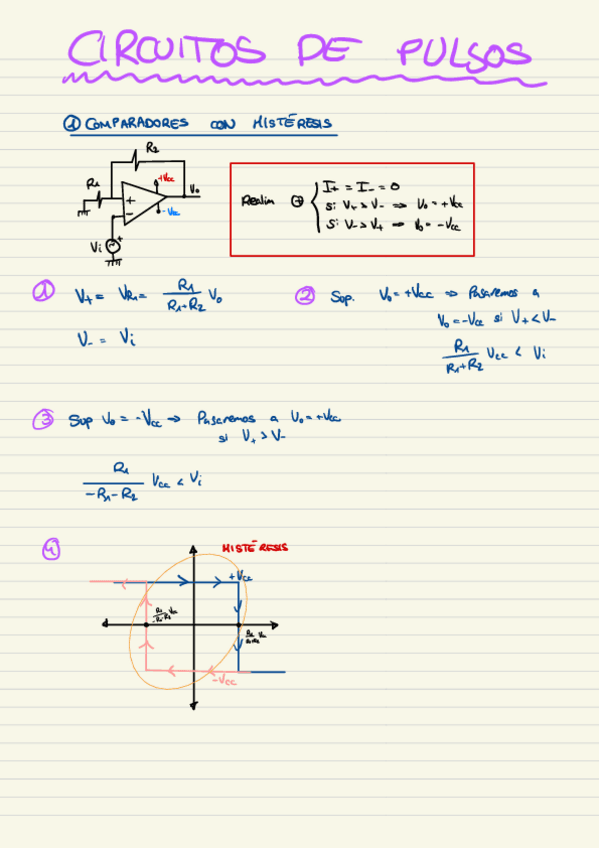 CIRCUITOS DE PULSOS
① COMPARADORES CON HISTÉRESIS
R2
R1
+Vcc
Vo
-Vcc
+
-
Vi
+
Realim ⊕ { I+ = I- = 0
Si V+ > V- ⇒ Vo = +Vcc
Si V- > V+ ⇒ Vo = -Vcc
① V+ = VR1 = R1/(R1+R2) Vo
V- = Vi
② Sop. Vo = +Vcc ⇒ Pasaremos a
Vo = -Vcc si V+ < V-
R1/(R1+R2) Vcc < Vi
③ Sup Vo = -Vcc ⇒ Pasaremos a Vo = +Vcc
si V+ > V-
R1/(-R1-R2) Vcc < Vi
④ HISTÉRESIS
+Vcc
R1/(-R1-R2) Vcc
-Vcc